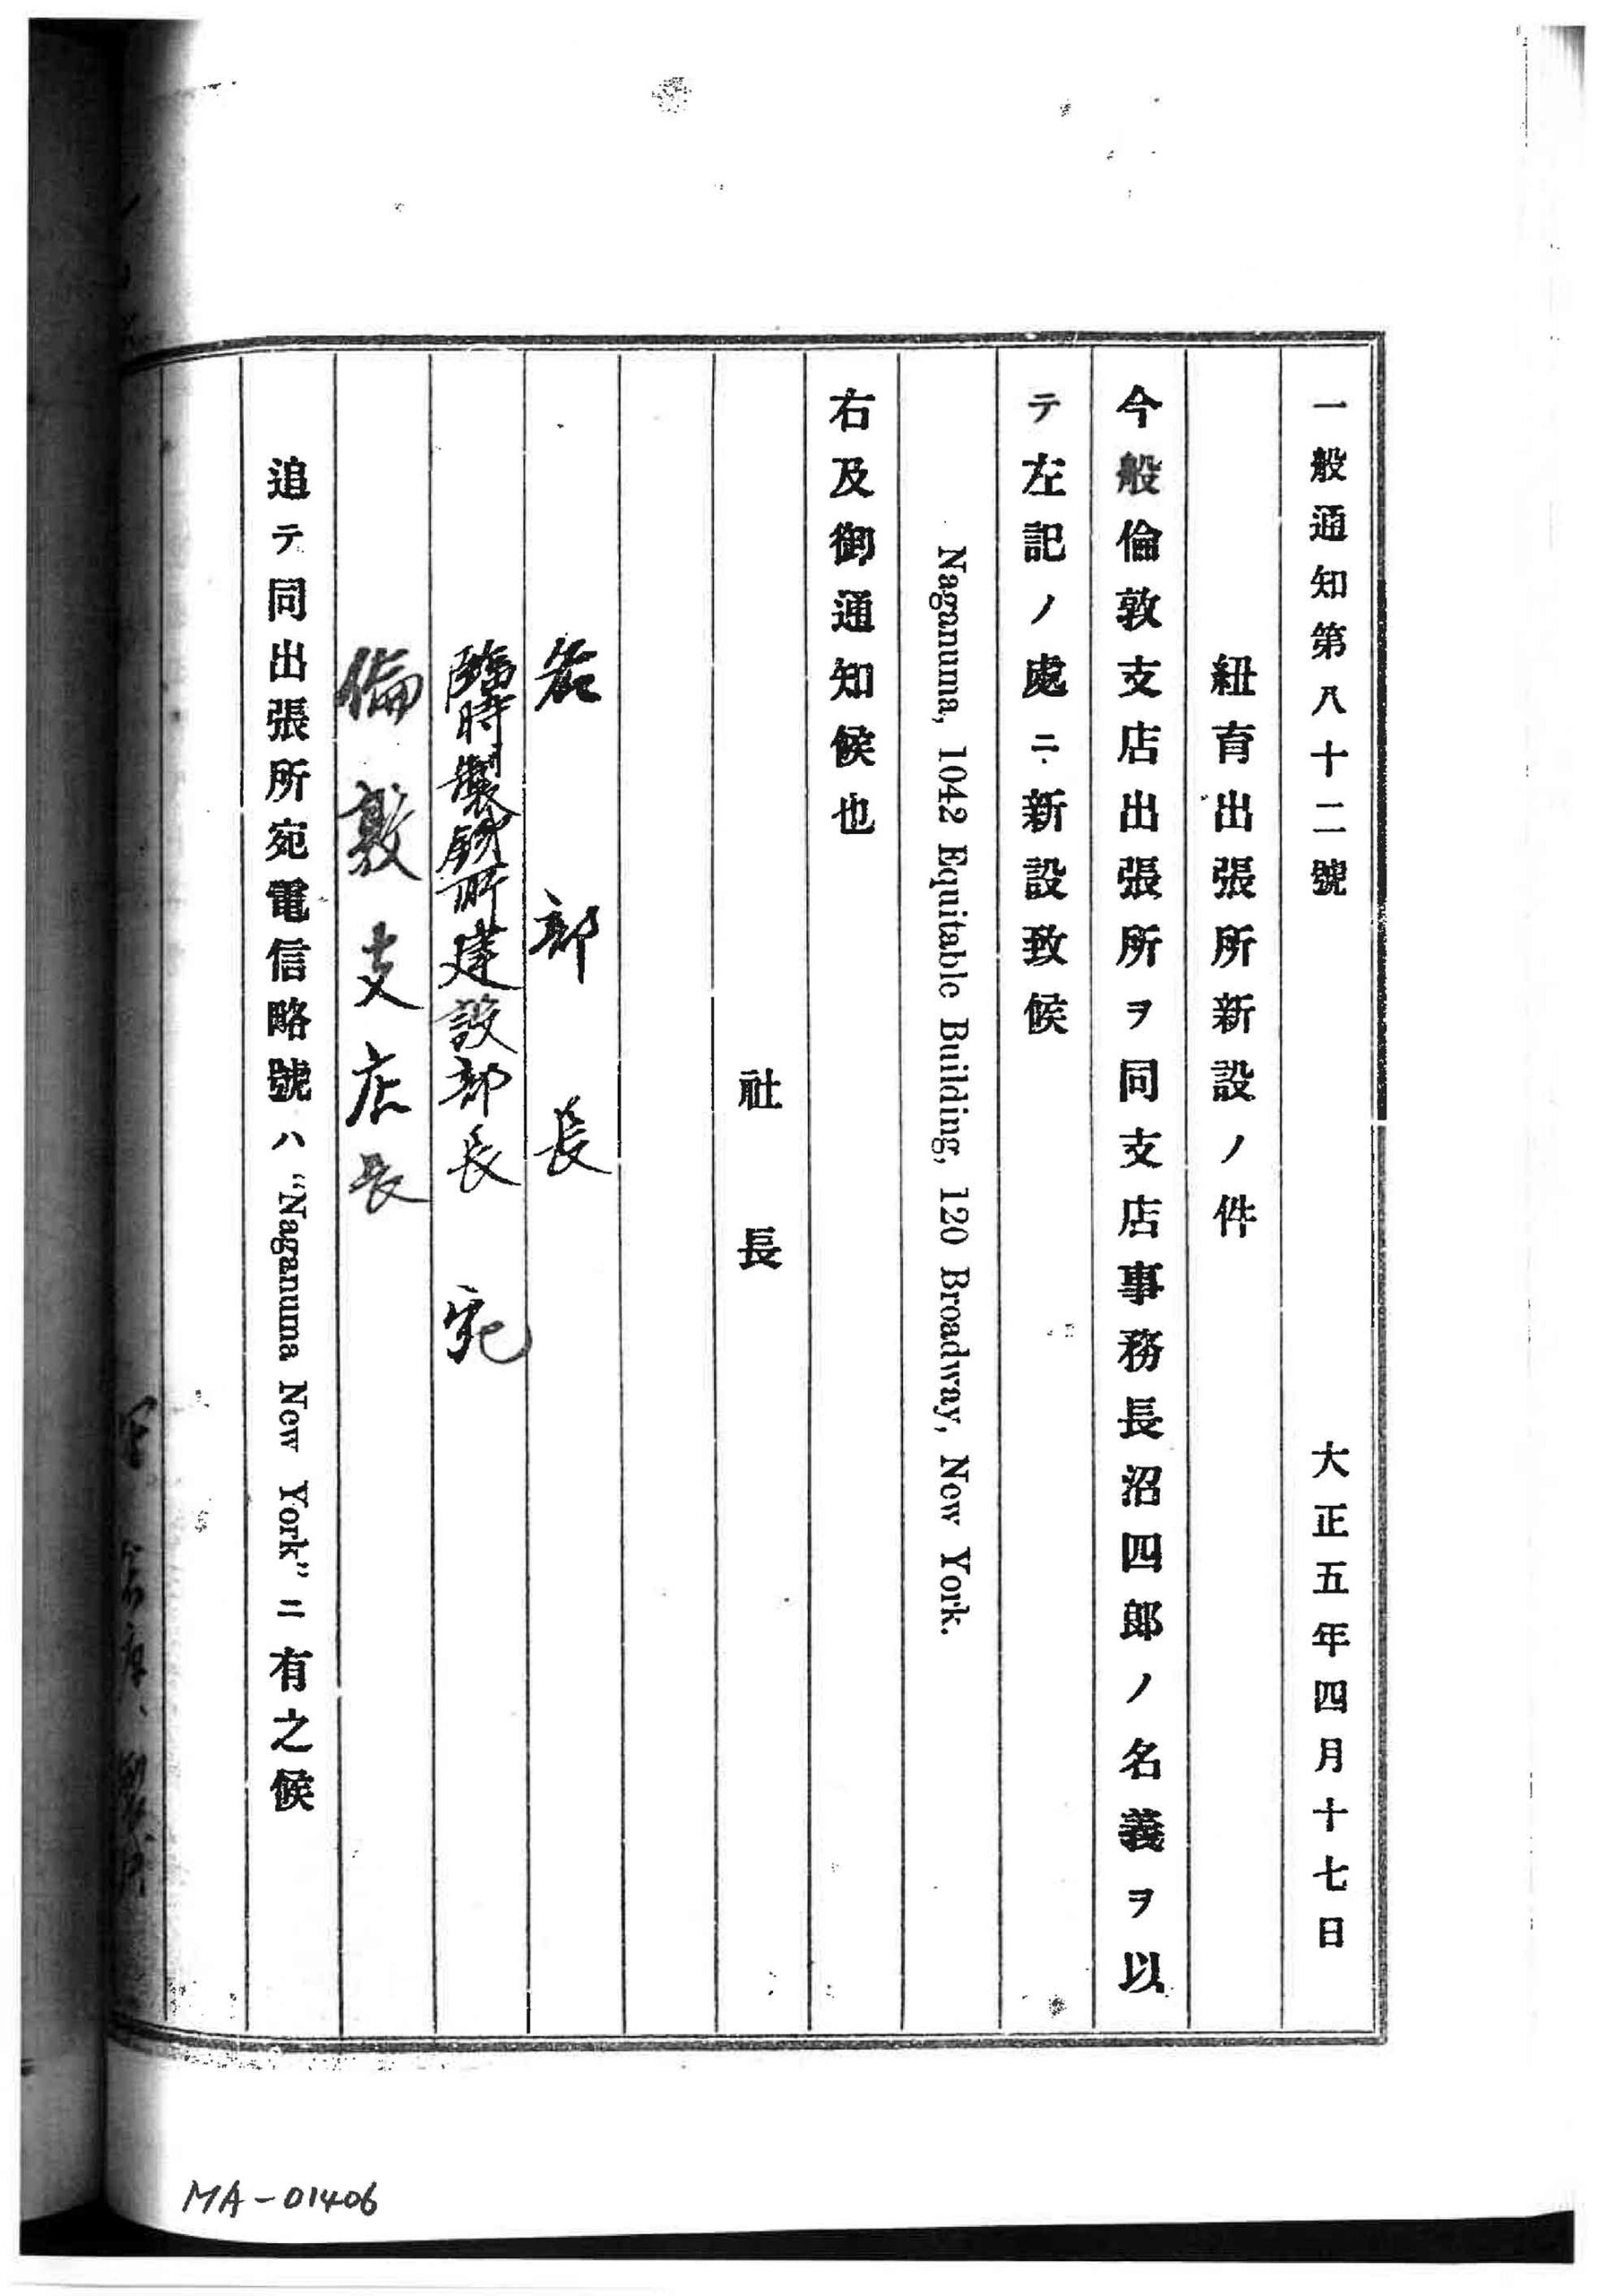 一般通知第八十二號　大正五年四月十七日
紐育出張所新設ノ件
今般倫敦支店出張所ヲ同支店事務長沼四郎ノ名義ヲ以
テ左記ノ處ニ新設致候
Naganuma, 1042 Equitable Building, 120 Broadway, New York.
右及御通知候也
社長
各部長
臨時製鉄所建設部長 宛
倫敦支店長
追テ同出張所宛電信略號ハ “Naganuma New York” ニ有之候
MA-01406